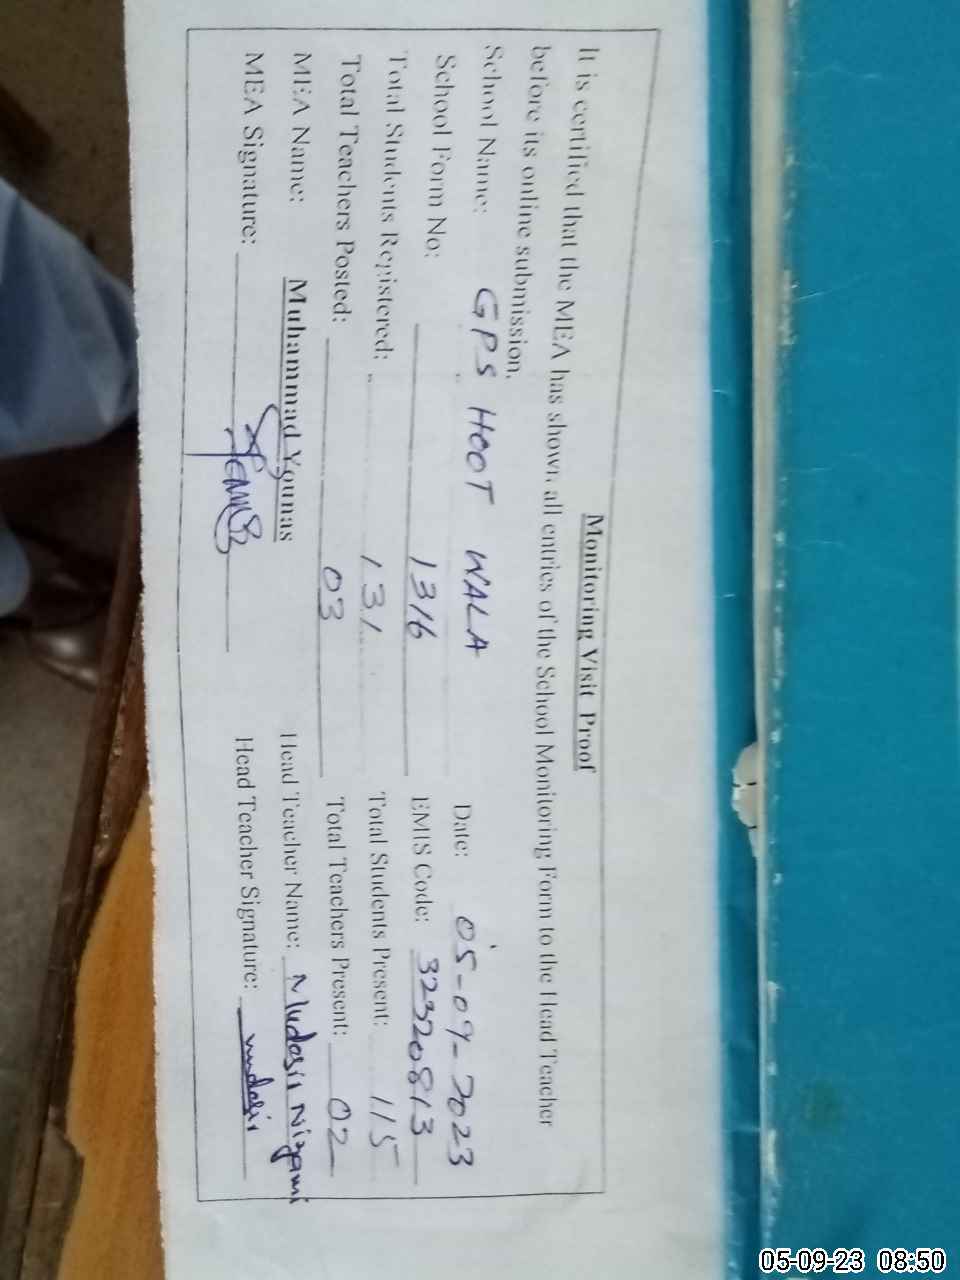 Monitoring Visit Proof
It is certified that the MEA has shown all entries of the School Monitoring Form to the Head Teacher
before its online submission.
School Name: GPS HOOT WALA Date: 05-09-2023
School Form No: 1316 EMIS Code: 32320813
Total Students Registered: 131 Total Students Present: 115
Total Teachers Posted: 03 Total Teachers Present: 02
MEA Name: Muhammad Younas Head Teacher Name: Mudasir Nizami
MEA Signature: Head Teacher Signature: mudasir
05-09-23 08:50